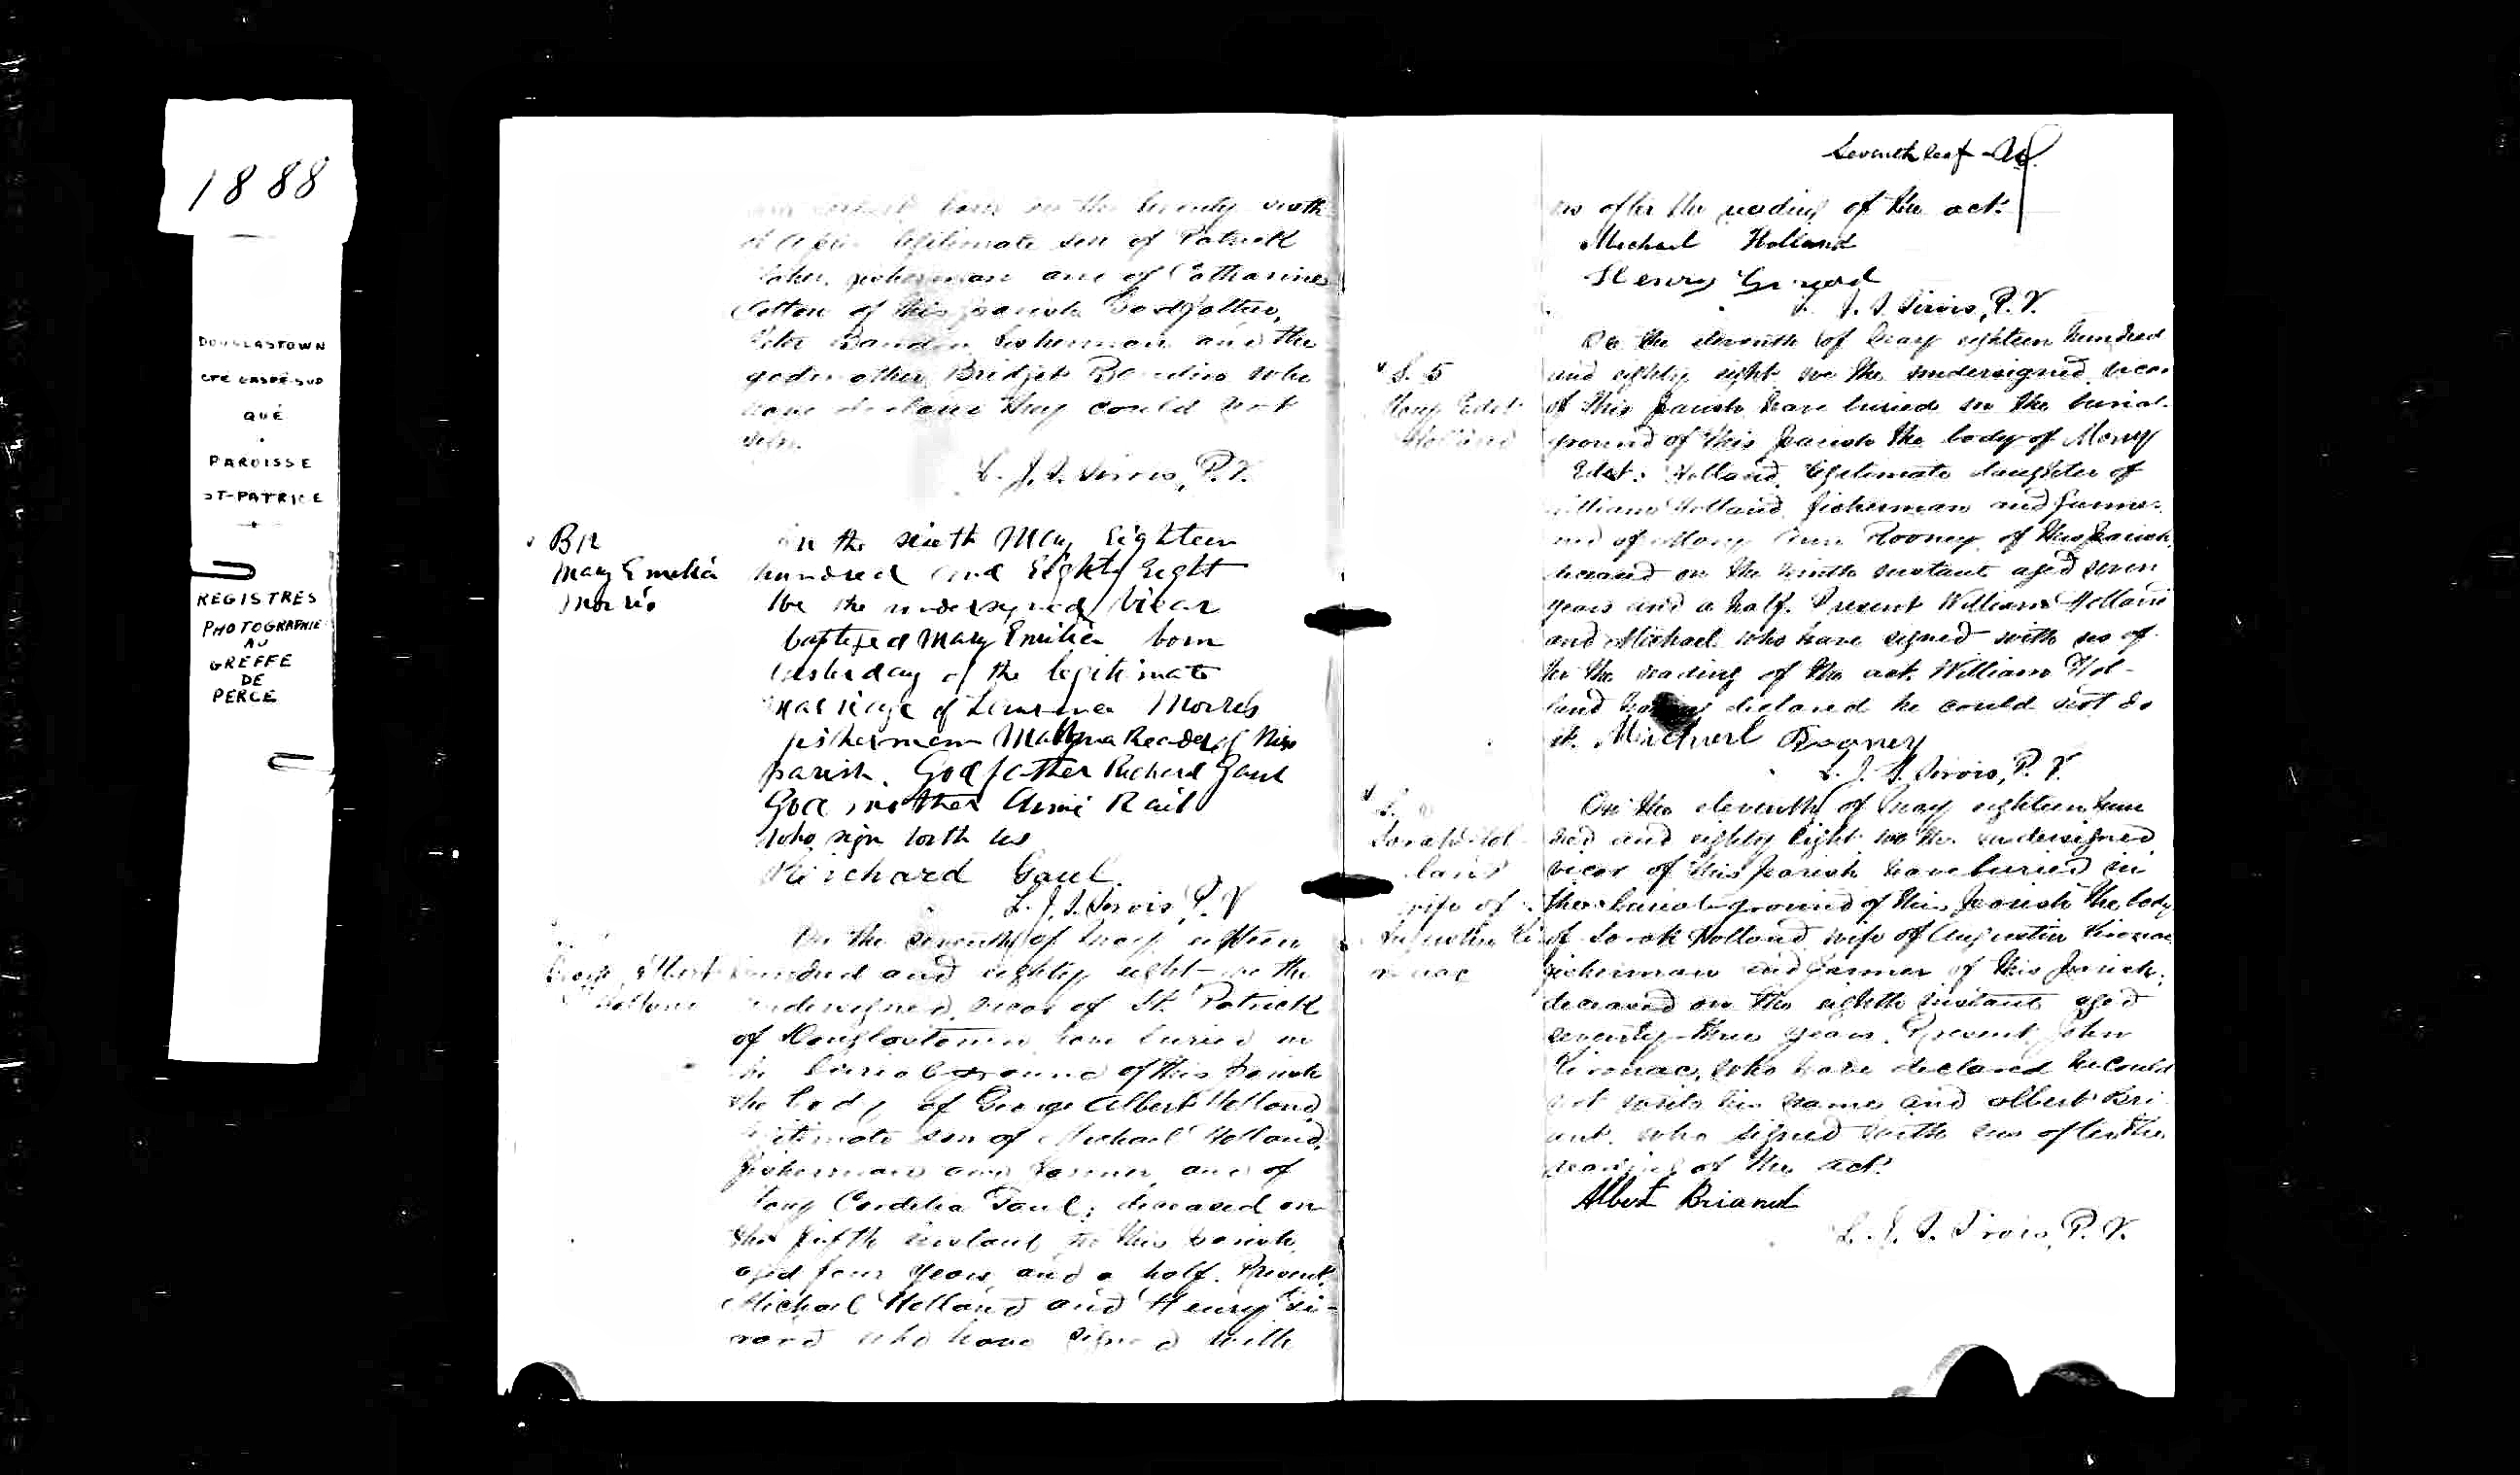 1888
DOUGLASTOWN
CTÉ GASPÉ-SUD
QUÉ
PAROISSE
ST-PATRICE
REGISTRES
PHOTOGRAPHIÉ
AU
GREFFE
DE
PERCE
born on the twenty sixth
legitimate son of Patrick
fisherman and of Catharine
of this parish Godfather,
fisherman and the
godmother Bridget who
have declared they could not
sign.
L. J. I. Sirois, P. V.
B12
Mary Emelia
Morris
on the sixth May Eighteen
hundred and Eighty Eight
We the undersigned Vicar
baptized Mary Emilia born
yesterday of the legitimate
marriage of Morris
fisherman of this
parish. Godfather Richard Gaul
God mother Annie Rail
who sign with us
Richard Gaul
L. J. I. Sirois P. V
George Albert
Holland
On the seventh of May eighteen
hundred and eighty eight we the
undersigned vicar of St. Patrick
of Douglastown have buried in
the burial ground of this parish
the body of George Albert Holland
legitimate son of Michael Holland,
fisherman and farmer and of
Mary Cordelia Gaul; deceased on
the fifth instant in this parish
aged four years and a half. Present,
Michael Holland and Henry Gi-
rard who have signed with
Seventh leaf
us after the reading of the act.
Michael Holland
Henry Girard
L. J. I. Sirois, P. V.
S. 5
Mary
Holland
On the eleventh of May eighteen hundred
and eighty eight we the undersigned vicar
of this parish have buried in the burial-
ground of this parish the body of Mary
Holland, legitimate daughter of
William Holland fisherman and farmer
and of Mary Ann Rooney of this parish,
deceased on the ninth instant aged seven
years and a half. Present William Holland
and Michael who have signed with us af-
ter the reading of the act. William Hol-
land having declared he could not do
it. Michael Rooney
L. J. I. Sirois, P. V.
S.
Sarah Hol-
land
wife of
Augustin Ki
onac
On the eleventh of May eighteen hun
dred and eighty eight we the undersigned
vicar of this parish have buried in
the burial-ground of this parish the body
of Sarah Holland wife of Augustin
fisherman and farmer of this parish,
deceased on the eighth instant aged
seventy-three years. Present John
who have declared he could
not write his name and Albert Bri
ant who signed with us after the
reading of the act.
Albert Briand
L. J. I. Sirois, P. V.